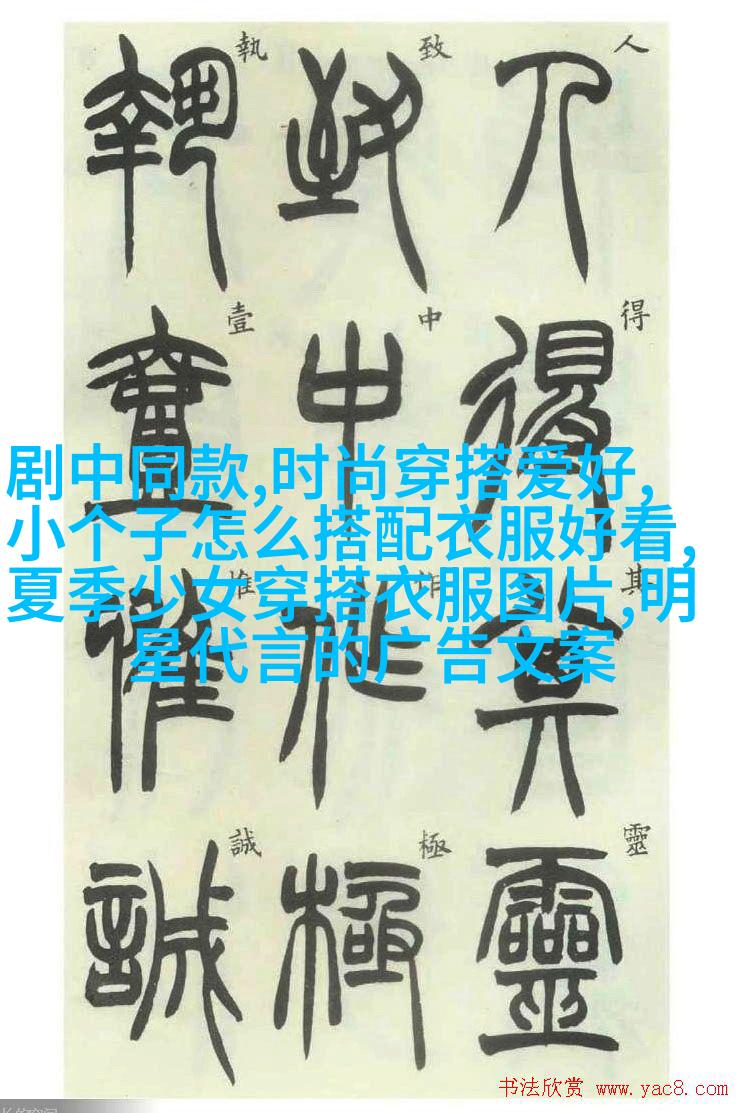 人得其靈
致中作極
執壹惟誠
人
得
其
靈
致
中
作
極
執
壹
惟
誠
剧中同款,时尚穿搭爱好,
小个子怎么搭配衣服好看,
夏季少女穿搭衣服图片,明
星代言的广告文案
书法欣赏 www.yac8.com